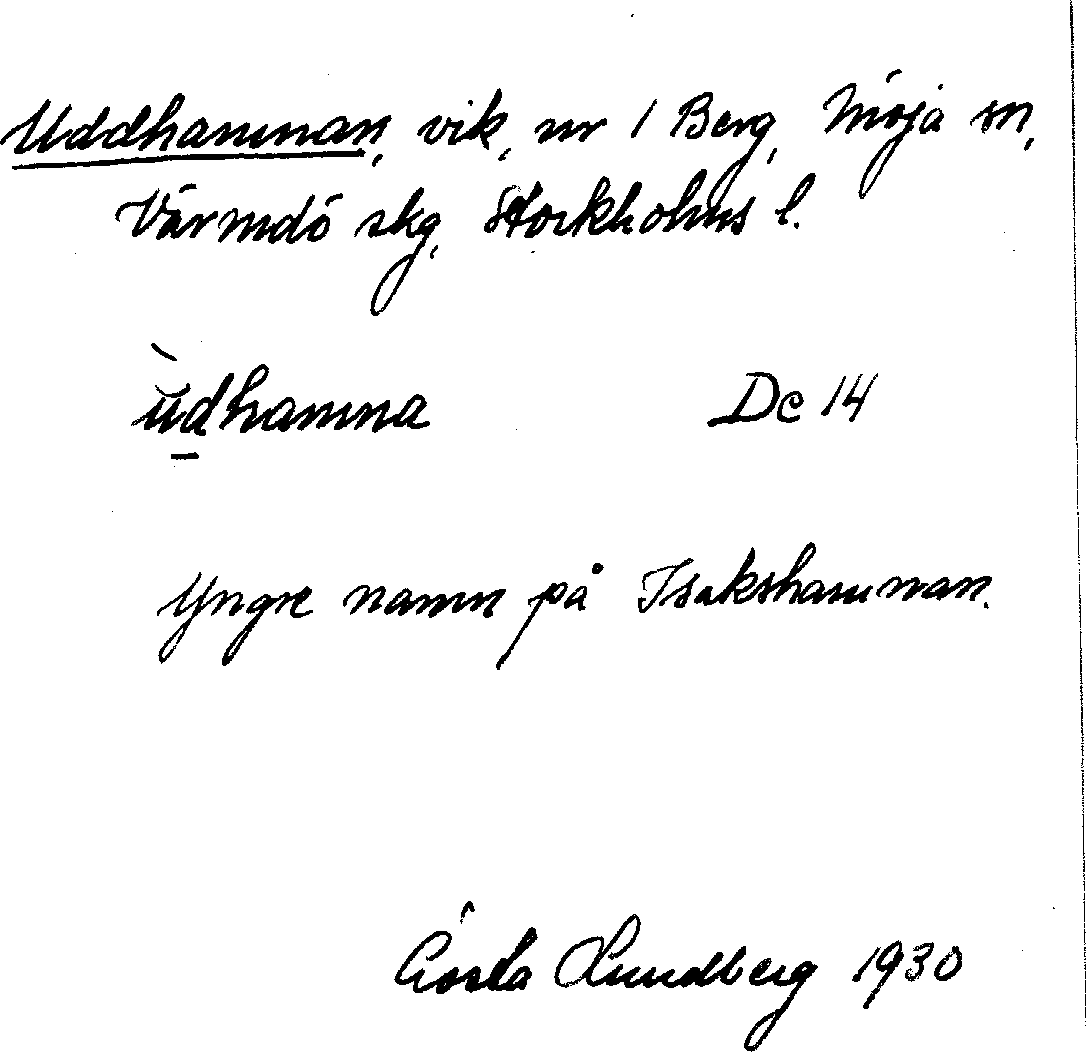 Uddhamnan, vik, nr 1 Berg, Möja sn,
Värmdö skg, Stockholms l.
ùdhamna De 14
Yngre namn på Isakshamnan.
Gösta Lundberg 1930